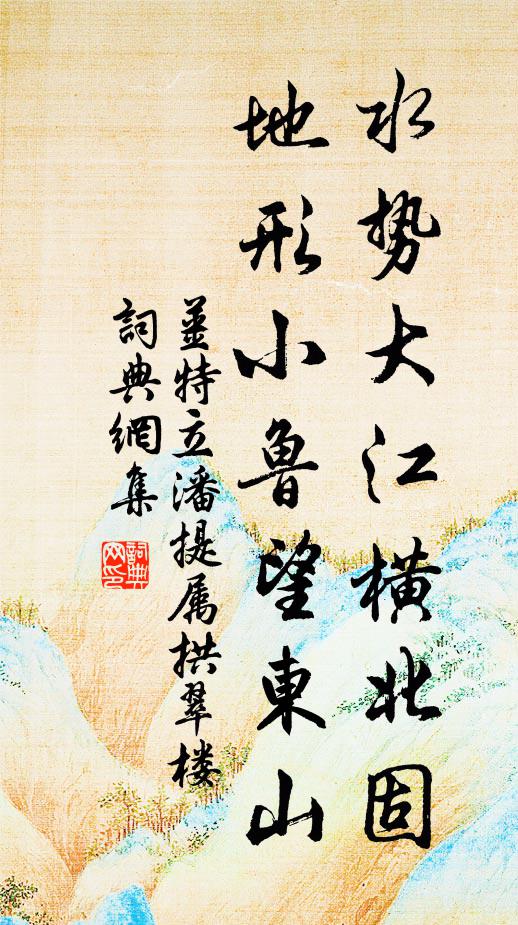 水势大江横北固
地形小鲁望東山
姜特立潘提属拱翠楼
詞典網集
詞典网印